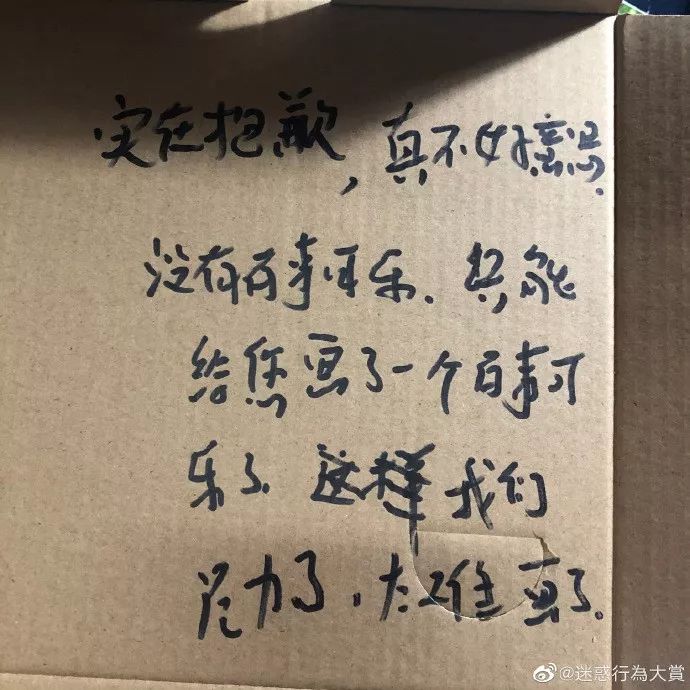 实在抱歉，真不好意思.
没有百事可乐、只能
给您画了一个百事可
乐了、这样我们
尽力了，太难画了.
@迷惑行為大賞